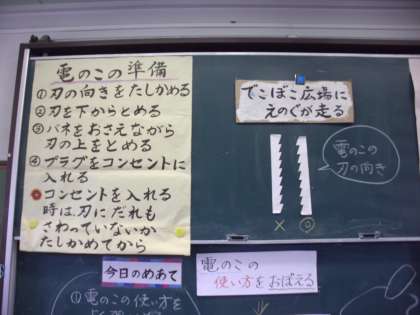 電のこの準備
①刃の向きをたしかめる
②刃を下からとめる
③バネをおさえながら
刃の上をとめる
④プラグをコンセントに
入れる
コンセントを入れる
時は、刃にだれも
さわっていないか
たしかめてから
でこぼこ広場に
えのぐが走る
電のこの
刃の向き
× ◎
今日のめあて
電のこの
使い方をおぼえる
①電のこの使い方を